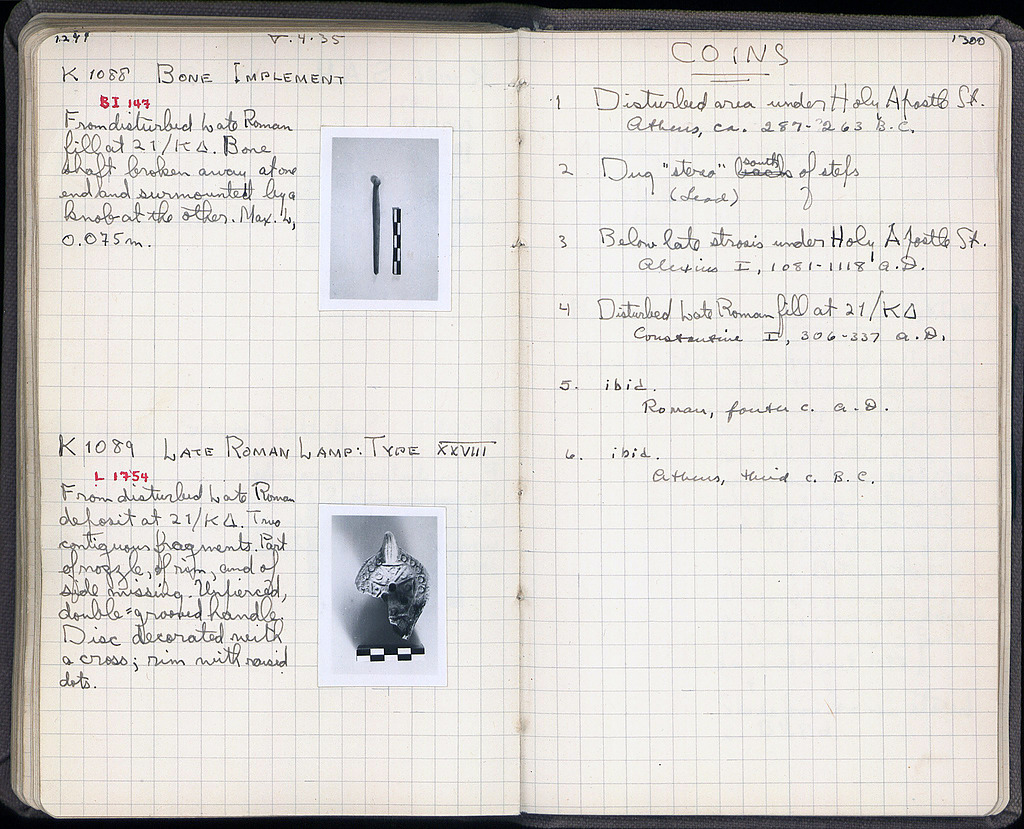 1299
V.4.35
K 1088 BONE IMPLEMENT
BI 147
From disturbed Late Roman
fill at 21/ΚΔ. Bone
shaft broken away at one
end and surmounted by a
knob at the other. Max. L,
0.075m.
K 1089 LATE ROMAN LAMP: TYPE XXVIII
L 1754
From disturbed Late Roman
deposit at 21/ΚΔ. Two
contiguous fragments. Part
of nozzle, of rim, and of
side missing. Unpierced,
double-grooved handle.
Disc decorated with
a cross; rim with raised
dots.
1300
COINS
1 Disturbed area under Holy Apostle St.
Athens, ca. 287-263 B.C.
2 Dug "stereo" south of steps
(Lead)
3 Below late strosis under Holy Apostle St.
Alexius I, 1081-1118 A.D.
4 Disturbed Late Roman fill at 21/ΚΔ
Constantine I, 306-337 A.D.
5. ibid.
Roman, fourth c. A.D.
6. ibid.
Athens, third c. B.C.